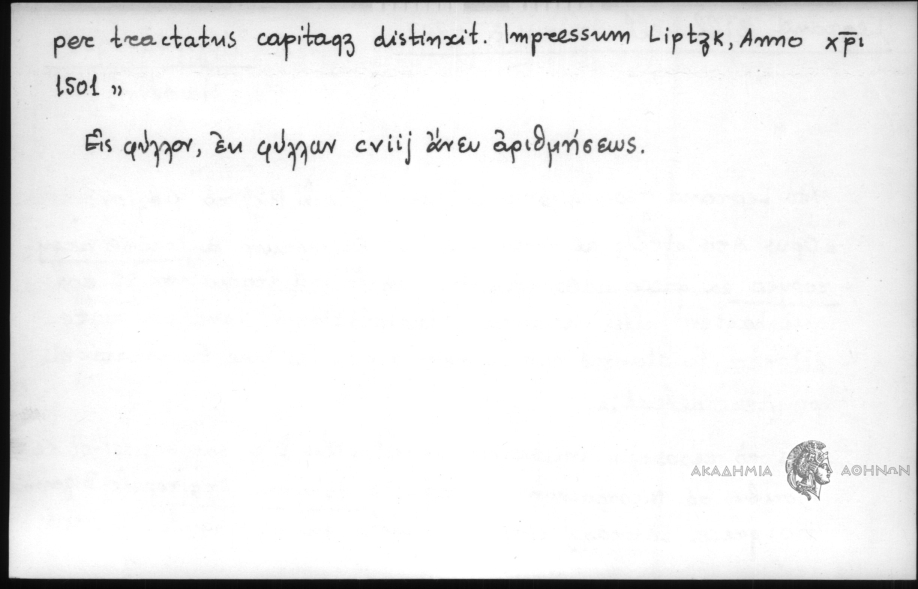 per tractatus capitaqꝫ distinxit. Impressum Liptzk, Anno xp̅ι
1501 ”
Εἰς φύλλον, ἐκ φύλλων cviij ἄνευ ἀριθμήσεως.
ΑΚΑΔΗΜΙΑ ΑΘΗΝΩΝ